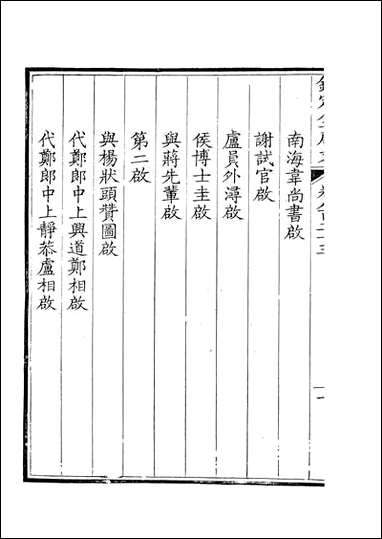 南海韋尚書啟
謝試官啟
盧員外潯啟
侯博士圭啟
與蔣先輩啟
第二啟
與楊狀頭贊圖啟
代鄭郎中上興道鄭相啟
代鄭郎中上靜恭盧相啟